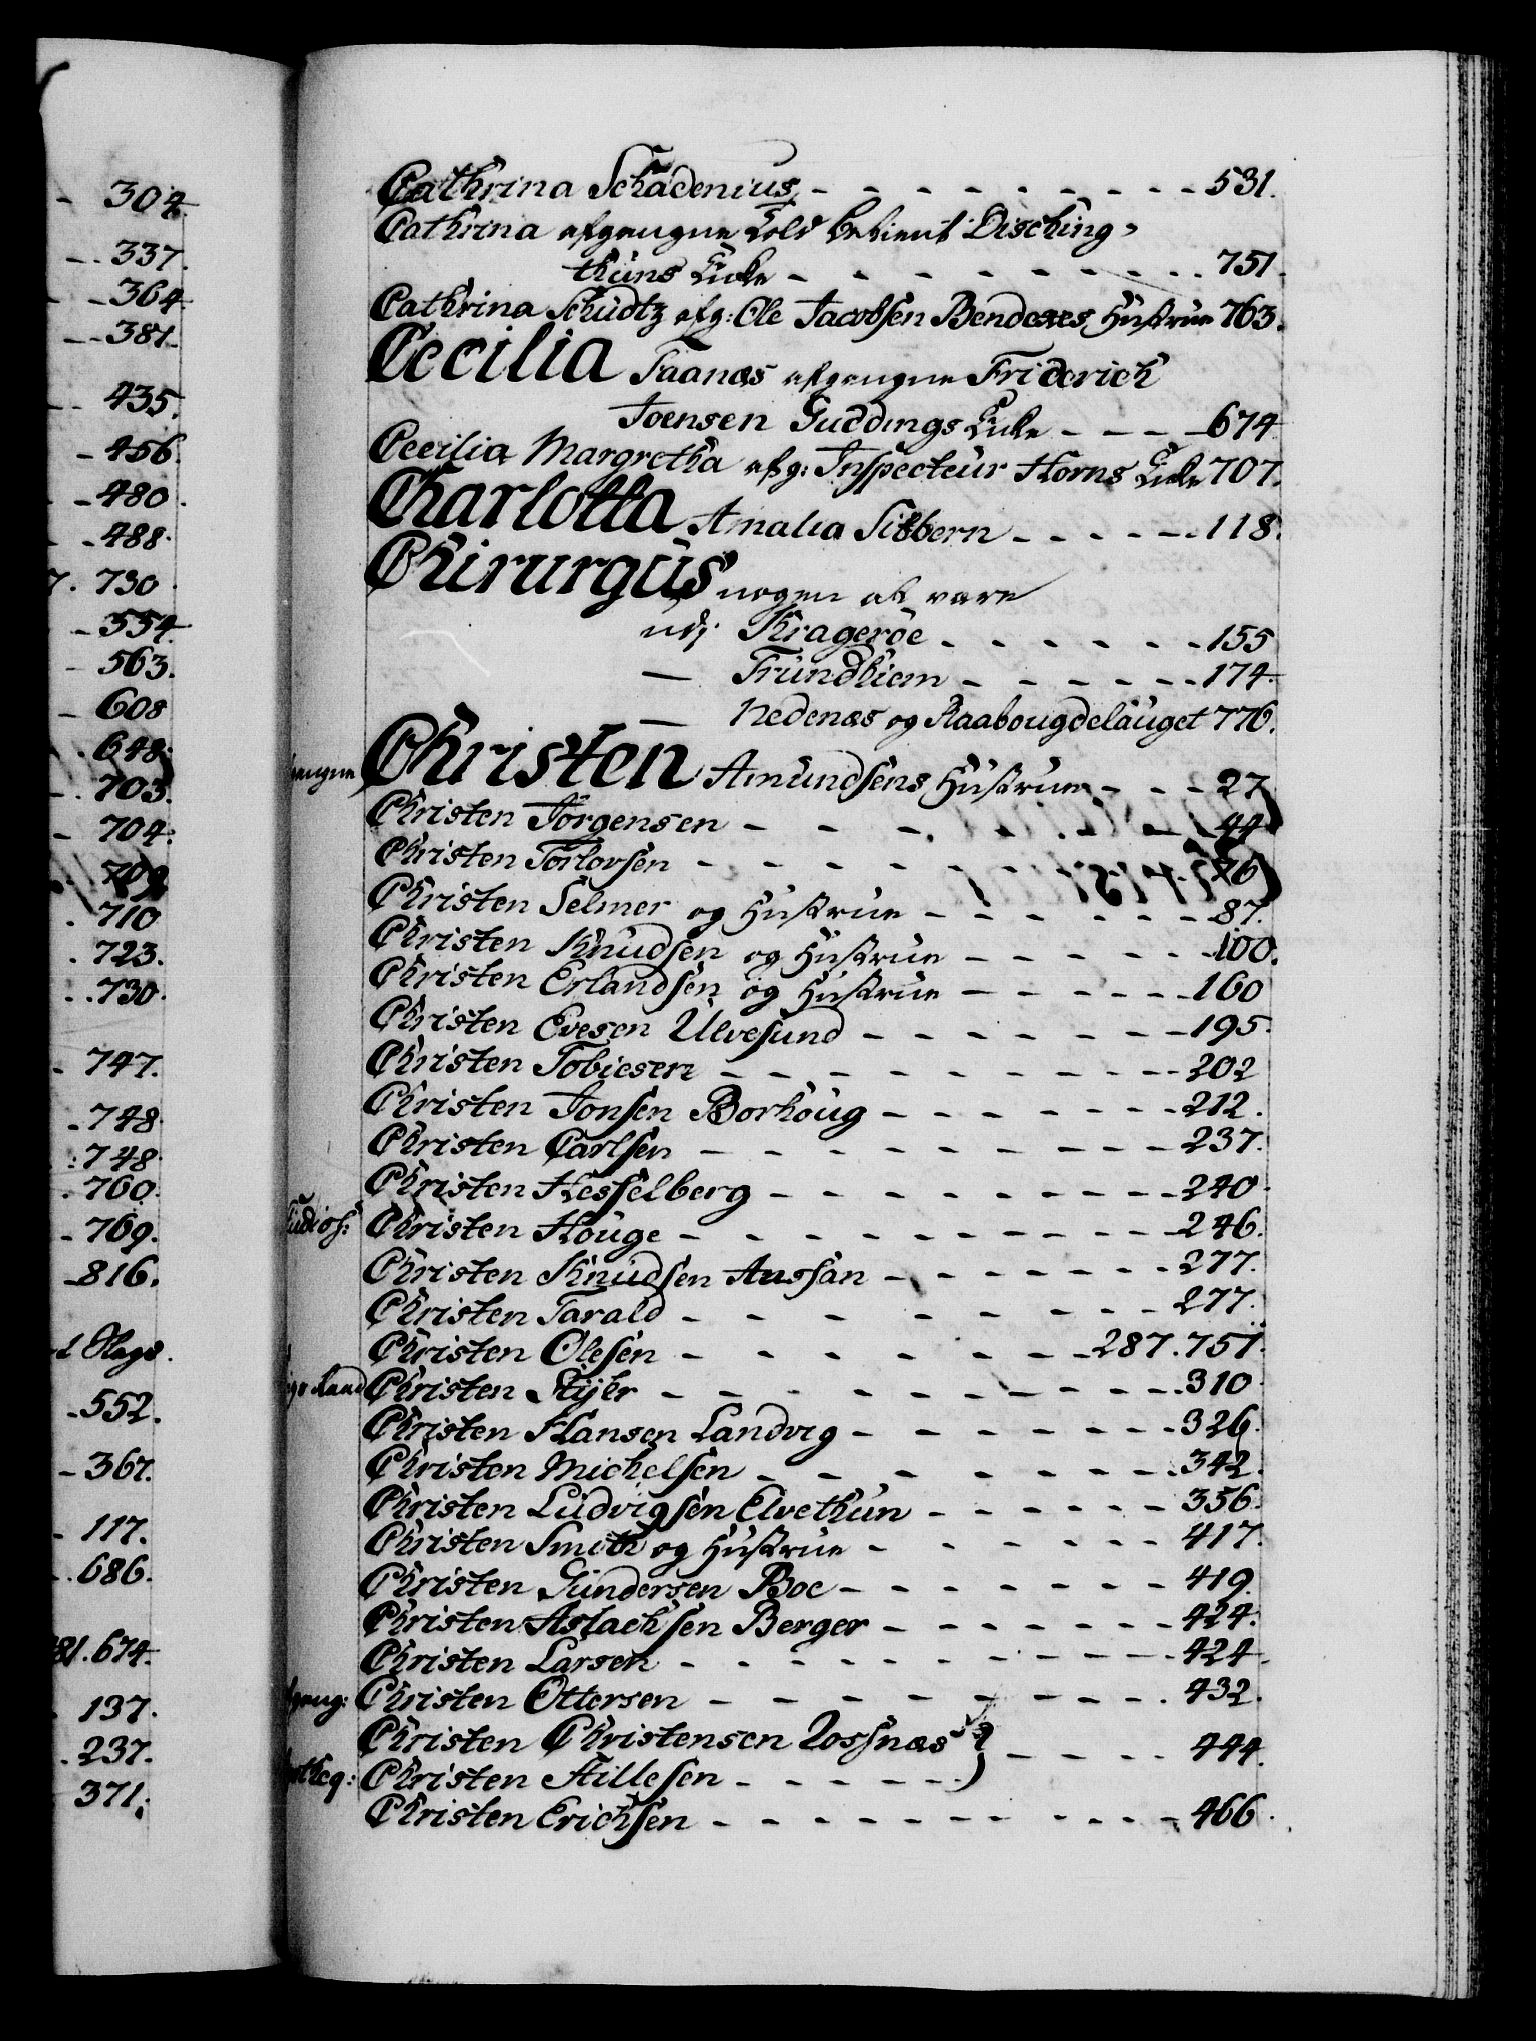 304.
337.
364.
381.
435.
456.
480.
488.
7. 730.
554.
563.
608
648.
703.
704.
709
710
723.
730.
747.
748.
748.
760.
769.
816.
552.
367.
117.
686.
81. 674.
137.
237.
371.
Cathrina Schadenius - - - - - - - - - 531.
Cathrina afgangne Told betient Disching-
thuns Enke - - - - - - - - - 751.
Cathrina Schudtz afg: Ole Jacobsen Benderes Hustrue 763.
Cecilia Faanæs afgangne Friderich
Joensen Guddings Enke - - - 674
Cecilia Margretha afg: Inspecteur Horns Enke 707.
Charlotta Amalia Sibbern - - - - - 118.
Chirurgus nogen at være
udj Kragerøe - - - - - - 155
— Trundhiem - - - - - - 174.
— Nedenæs og Raabougdelauget 776.
Christen Amundsens Hustrue - - - 27
Christen Jørgensen - - - - - - - 44
Christen Torlovsen - - - - - - - 76
Christen Selmer og Hustrue - - - - - - 87.
Christen Knudsen og Hustrue - - - - - - 100.
Christen Erlandsen og Hustrue - - - - - 160
Christen Evesen Ulvesund - - - - - - - 195.
Christen Tobiesen - - - - - - - - - 202
Christen Jonsen Borhoug - - - - - - - 212.
Christen Carlsen - - - - - - - - - 237.
Christen Hesselberg - - - - - - - - - 240.
Studios: Christen Houge - - - - - - - - - 246.
Christen Knudsen Aussan - - - - - - - 277.
Christen Tarald - - - - - - - - - 277.
Christen Olesen - - - - - - - 287. 751.
Christen Stijhr - - - - - - - - - 310
Christen Hansen Landvig - - - - - - - 326.
Christen Michelsen - - - - - - - - 342.
Christen Ludvigsen Elvethun - - - - - - 356.
Christen Smith og Hustrue - - - - - - 417.
Christen Gundersen Boe - - - - - - - 419.
Christen Aslachsen Berger - - - - - - - 424.
Christen Larsen - - - - - - - - - 424.
Christen Ottersen - - - - - - - - - 432.
Christen Christensen Rossnæs } - - - - 444.
Christen Hillesen - - - - - - )
Christen Erichsen - - - - - - - - - 466.